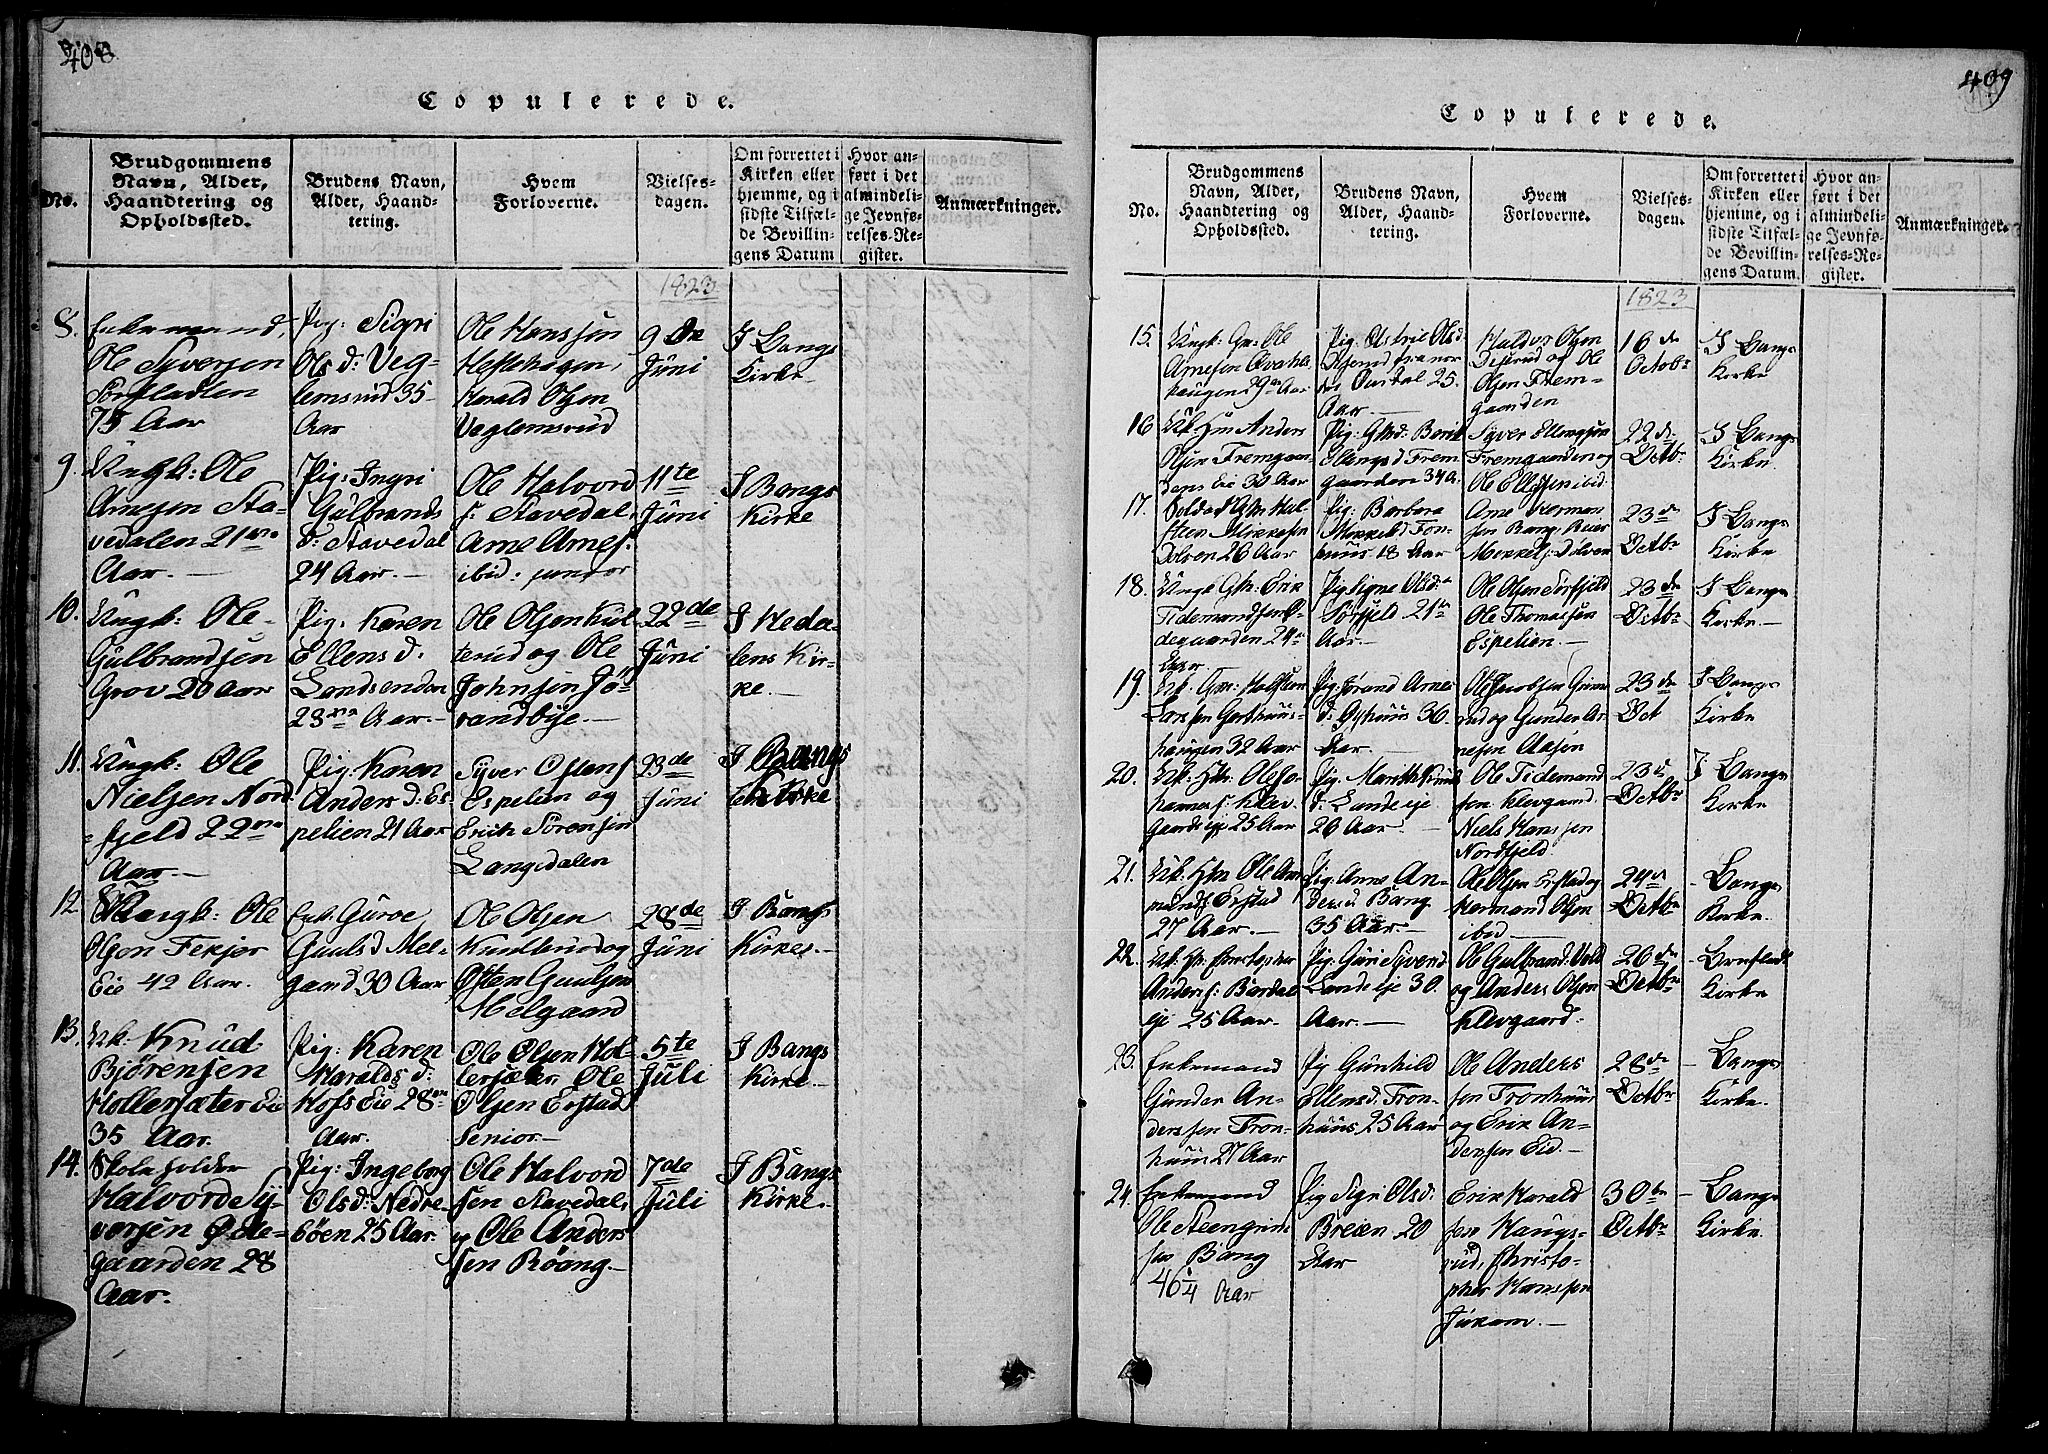 408
Copulerede.
No.
Brudgommens
Navn, Alder,
Haandtering og
Opholdssted.
Brudens Navn,
Alder, Haand-
tering.
Hvem
Forloverne.
Vielses-
dagen.
Om forrettet i
Kirken eller
hjemme, og i
sidste Tilfæl-
de Bevillin-
gens Datum
Hvor an-
ført i det
almindeli-
ge Jevnfø-
relses-Re-
gister.
Anmærkninger.
1823
8.
Enkemand,
Ole Syversen
Sørfladten
75 Aar
Pig: Sigri
Ols d: Veg-
lemsrud 35
Aar
Ole Hanssen
Heftehagen,
Harald Olsen
Veglemsrud
9de
Juni
I Bangs
Kirke
9.
Ungk: Ole
Arnesen Sta-
vedalen 21
Aar.
Pig: Ingri
Gulbrands
d: Stavedal
24 Aar.
Ole Halvord
s: Stavedal,
Arne Arnes:
ibid: junior
11te
Juni
I Bangs
Kirke
10.
Ungk: Ole
Gulbrandsen
Grov 20 Aar
Pig: Karen
Ellens d:
Landsenden
23 Aar.
Ole Olsen Kul
terud og Ole
Johnsen Jö-
randbye.
22de
Juni
I Heda-
lens Kir-
ke.
11.
Ungk: Ole
Nielsen Nord
fjeld 22
Aar.
Pig: Karen
Anders d: Es-
pelien 21 Aar
Syver Ostens
Espelien og
Erich Sörensen
Langedalen
23de
Juni
I Bangs
Kirke
12.
Ungk: Ole
Olsen Fekjer
Eie 42 Aar.
Enk: Guroe
Guuls d Mel-
gaard 30 Aar
Ole Olsen
Kundterud og
Osten Guulsen
Melgaard
28de
Juni
I Bangs
Kirke.
13.
Uk. Knud
Bjørensen
Hollersæter Eie
35 Aar.
Pig: Karen
Haralds d:
Hofs Eie 28
Aar.
Ole Olsen Hol-
lersæter, Ole
Olsen Erstad
Senior.
5te
Juli
I Bangs
Kirke.
14.
Skoleholder
Halvord Sy-
versen Øde-
gaarden 28
Aar.
Pig: Ingeborg
Ols d: Nedre-
böen 25 Aar.
Ole Halvord
sen Stavedal,
og Ole Anders
sen Röang.
7de
Juli
I Bangs
Kirke.
409
Copulerede.
No.
Brudgommens
Navn, Alder,
Haandtering og
Opholdssted.
Brudens Navn,
Alder, Haand-
tering.
Hvem
Forloverne.
Vielses-
dagen.
Om forrettet i
Kirken eller
hjemme, og i
sidste Tilfæl-
de Bevillin-
gens Datum.
Hvor an-
ført i det
almindeli-
ge Jevnfø-
relses-Re-
gister.
Anmærkninger.
1823
15.
Ungk: Gr: Ole
Arnesen
haugen 29 Aar
Pig: Astrie Ols d:
25.
Aar
Haldor Olsen
Disrud og Ole
Olsen Frem-
gaarden
16de
Octobr
I Bangs
Kirke
16
Anders
Olsen Fremgaar-
dens Eie 30 Aar
Pig: Berit
Ellings d Frem
gaarden 34 A.
Syver Ellingsen
Fremgaarden og
Ole Ellefsen ibid.
22de
Octbr
I Bangs
Kirke.
17.
Soldat Hal-
sten Mikkelsen
Dölven 26 Aar
Pig: Barbara
Mekkels d Fon-
huus 18 Aar
Arne Herman
sen Bang, Beår
Mekkels: Dölven
23de
Octbr
I Bangs
Kirke
18.
Ungk Erik
Tidemandsen Ø-
degaarden 24
Aar.
Pig Signe Ols d:
Sørfjeld 21
Aar.
Ole Olsen Sørfjeld
Ole Thomassen
Espelien.
23de
Octbr
I Bangs
Kirke.
19.
Uk. Gr: Halsteen
Larssen Garthuus-
haugen 32 Aar
Pig: Jörand Arnes
d: 30.
Aar.
Ole Jacobsen
rud og Gunder Ar
nesen Aasen
23de
Oct
I Bangs
Kirke
20.
Uk: Ole Jo-
hannes s: Klev-
gaards eje 25 Aar
Pig: Marithe Knuds
d: Lande eje
26 Aar.
Ole Tidemand
sen Klevgaard.
Niels Hanssen
Nordfjeld.
23d
Octbr
I Bangs
Kirke
21.
Uk. Ole Am
munds Erstad
27 Aar.
Pig: Anne An-
ders d Bang
35 Aar
Ole Olsen Erstad og
Hermand Olsen
ibid
24d
Octbr
Bangs
Kirke.
22.
Uk. Christopher
Anders s: Bardal
eje 25 Aar.
Pig: Guri Syvers d
Lands eje 30.
Aar.
Ole Gulbrand: Vold
og Anders Olsen
Klevgaard.
26de
Octbr
Brufladt
Kirke
23.
Enkemand
Gunder An-
derssen Tron-
huus 27 Aar
Pig Gunhild
Ellens d. Tron-
huus 25 Aar
Ole Anders
sen Tronhuus
og Erik An-
derssen Eid.
28de
Octbr
Bangs
Kirke.
24.
Enkemand
Ole Steengrims
sen Bang
46 1/4 Aar
Pig Sigri Ols d:
Breien 20
Aar
Erik Harald
sen Haugs-
rud, Christo-
pher Hanssen
Jukam.
30te
Octbr
Bangs
Kirke.